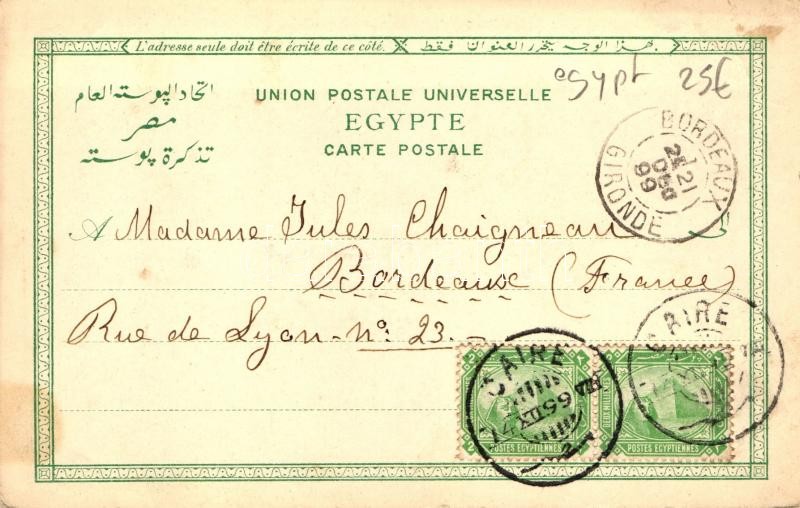 L'adresse seule doit être écrite de ce côté.
بهذا الوجه يتحرر العنوان فقط
egypt 25€
اتحاد البوسته العام
مصر
تذكرة بوسته
UNION POSTALE UNIVERSELLE
EGYPTE
CARTE POSTALE
BORDEAUX
21
DEC
99
GIRONDE
A Madame Jules Chaigneau
Bordeaux (France)
Rue de Lyon - no. 23. -
CAIRE
CAIRE
DEUX MILLIEMES
POSTES EGYPTIENNES
POSTES EGYPTIENNES